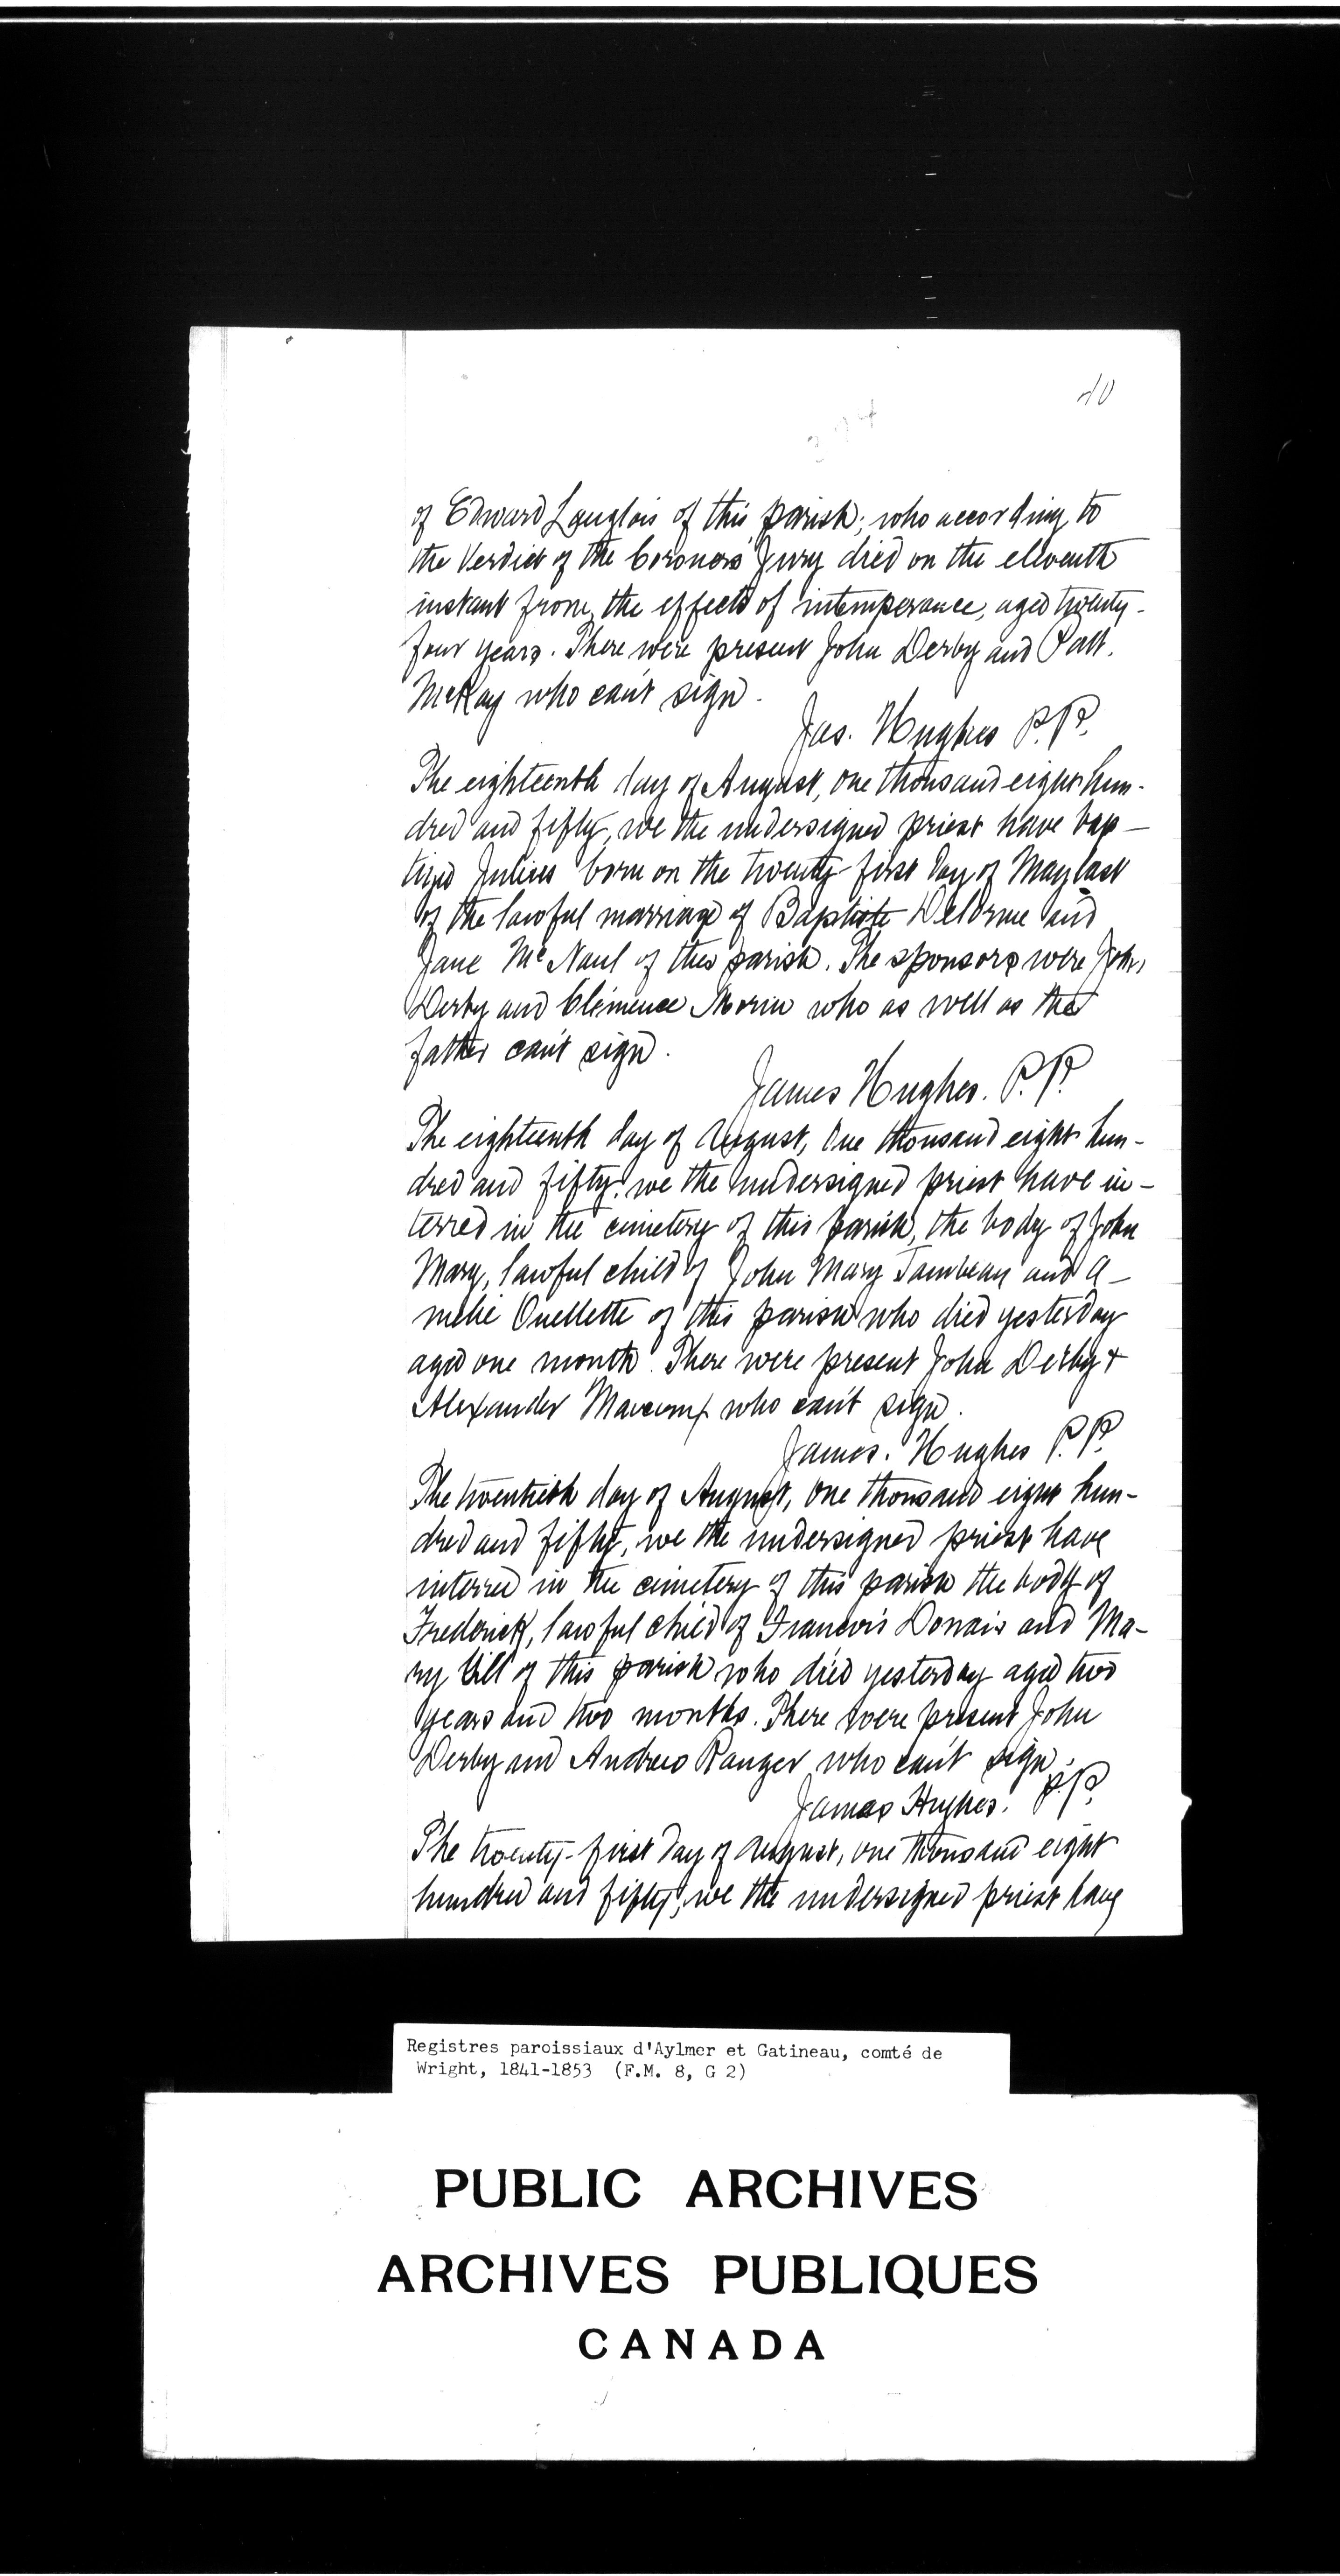 40
of Edward Langlois of this parish; who according to
the Verdict of the Coroner's Jury died on the eleventh
instant from the effects of intemperance, aged twenty-
four years. There were present John Derby and Patt.
McKay who can't sign.
Jas. Hughes P.P.
The eighteenth day of August, one thousand eight hun-
dred and fifty, we the undersigned priest have bap-
tized Julius born on the twenty-first day of May last
of the lawful marriage of Baptiste Delorme and
Jane McNaul of this parish. The sponsors were John
Derby and Clémence Morin who as well as the
father can't sign.
James Hughes. P.P.
The eighteenth day of August, One thousand eight hun-
dred and fifty, we the undersigned priest have in-
terred in the cemetery of this parish, the body of John
Mary, lawful child of John Mary and A-
melie Ouellette of this parish who died yesterday
aged one month. There were present John Derby +
Alexander who can't sign.
James. Hughes P.P.
The twentieth day of August, One thousand eight hun-
dred and fifty, we the undersigned priest have
interred in the cemetery of this parish the body of
Frederick, lawful child of Francois and Ma-
ry of this parish who died yesterday aged two
years and two months. There were present John
Derby and Andrew Ranger who can't sign.
James Hughes. P.P.
The twenty-first day of August, one thousand eight
hundred and fifty, we the undersigned priest have
Registres paroissiaux d'Aylmer et Gatineau, comté de
Wright, 1841-1853 (F.M. 8, G 2)
PUBLIC ARCHIVES
ARCHIVES PUBLIQUES
CANADA